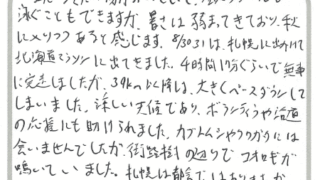 泳ぐこともできますが、暑さは弱まってきており、秋
にメリつつあると感じます。8/30.31は、札幌に出かけて
北海道マラソンに出てきました。4時間17分ぐらいで無事
に完走しましたが、34k 以降は、大きくペースダウンして
しまいました。涼しい天候であり、ボランティアや沿道
の応援にも助けられました。カブトムシやクワガタには
会いませんでしたが、街路樹の辺りでコオロギが
鳴いていました。札幌は